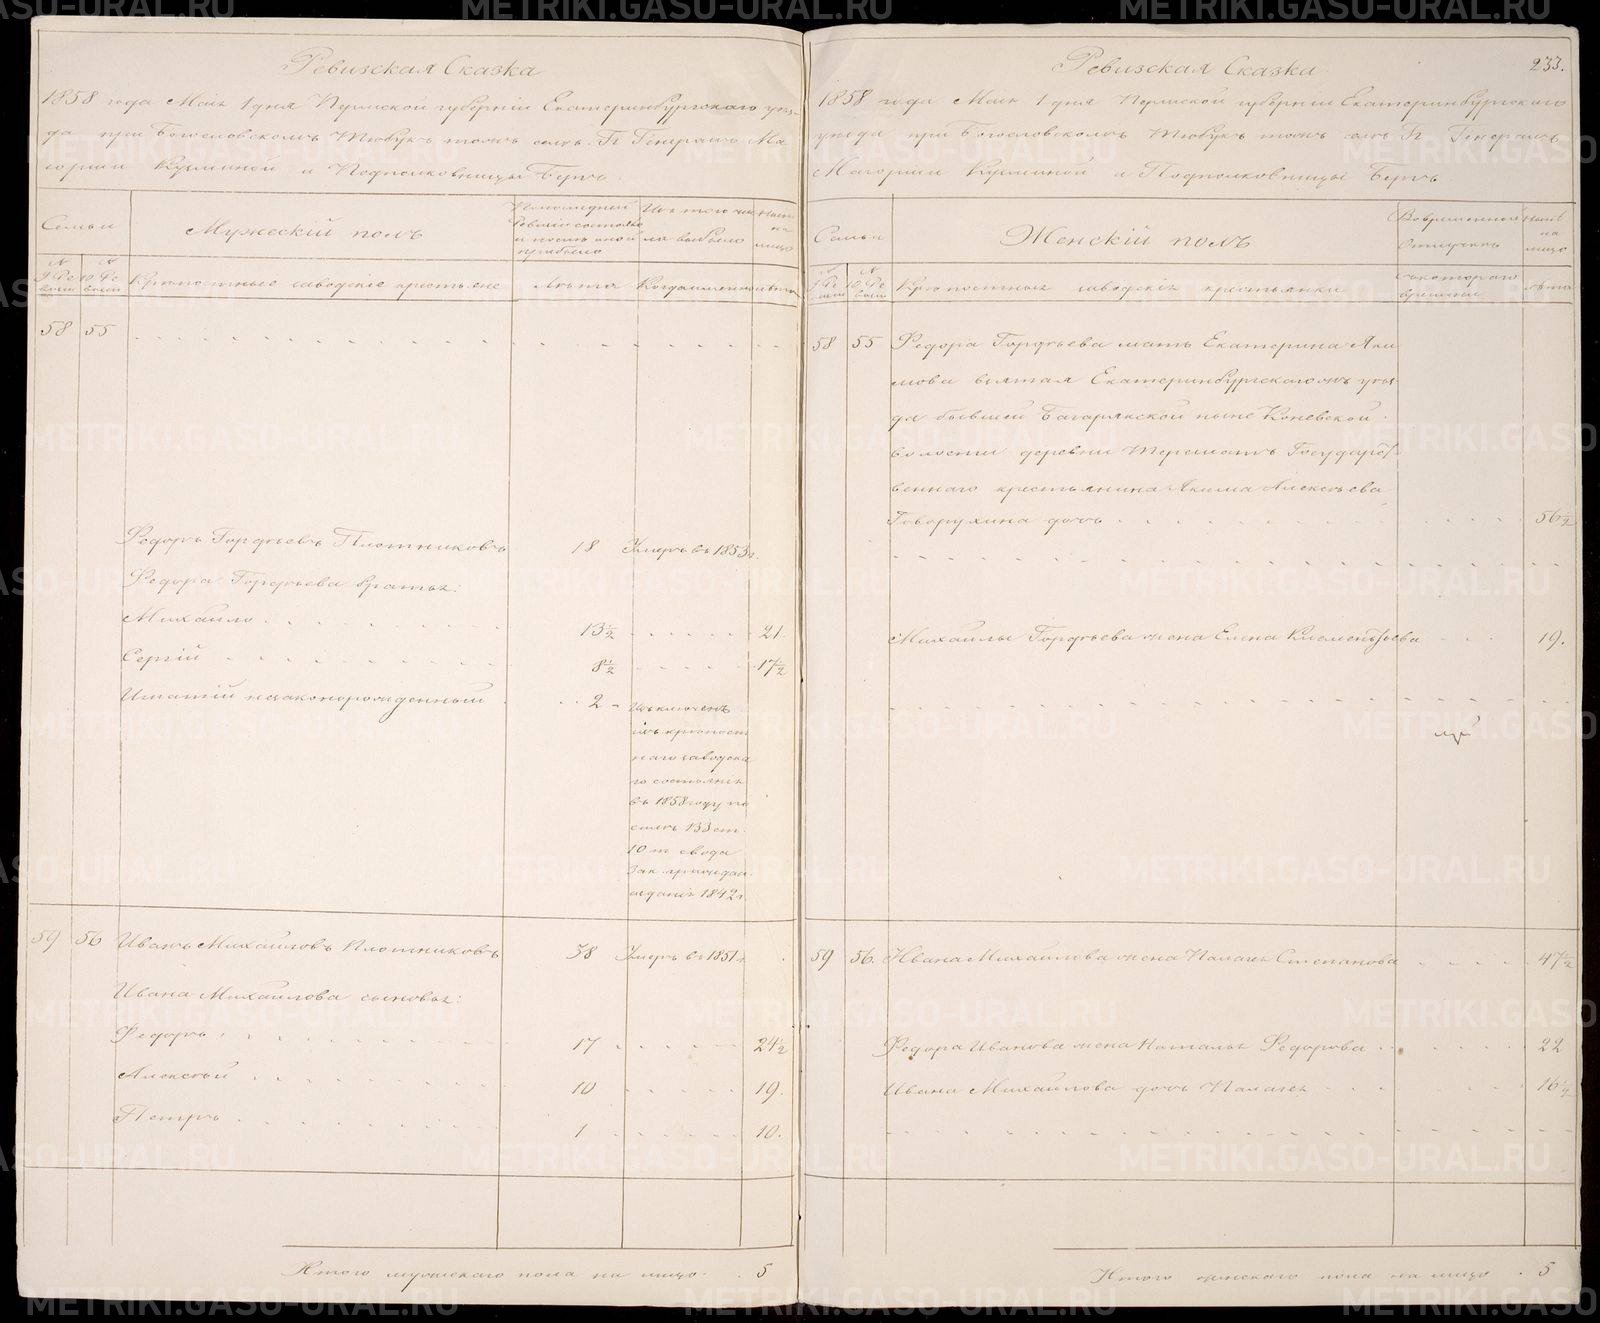 Ревизская Сказка
1858 года Маія 1 дня Пермской губерніи Екатеринбургскаго уѣз-
да при Богословскомъ Тюбукъ тожъ селѣ Гг Генералъ Ма
іорши Кузьминой и Подполковницы Бергъ.
Семьи
Мужескій полъ
Ревизіи состояло
прибыло
Изъ того чи
сла выбыло
на
лицо
№ 9 Ре
визіи
№ 10 Ре
визіи
Крѣпостные заводскіе крестьяне
Лѣта
Когда именно
Лѣта
58 55
Федоръ Гордѣевъ Плотниковъ 18 Умеръ въ 1853 г.
Федора Гордѣева братья:
Михайло 13½ 21.
Сергій 8½ 17½
Игнатій незаконорожденный 2
Исключенъ
изъ крѣпост
наго заводска
го состоянія
въ 1858 году по
силѣ 133 ст.
10 т свода
Зак. гражда
изданія 1842 г
59 56 Иванъ Михайловъ Плотниковъ 38 Умеръ въ 1851 г.
Ивана Михайлова сыновья:
Федоръ 17 24½
Алексѣй 10 19.
Петръ 1 10.
Итого мужскаго пола на лицо 5
Ревизская Сказка
233.
1858 года Маія 1 дня Пермской губерніи Екатеринбургскаго
уѣзда при Богословскомъ Тюбукъ тожъ селѣ Гг Генералъ
Маіорши Кузьминой и Подполковницы Бергъ
Семьи
Женскій полъ
Во временной
отлучкѣ
на
лицо
№ 9 Ре
визіи
№ 10 Ре
визіи
Крѣпостныя заводскія крестьянки
Съ котораго
времени
Лѣта
58 55 Федора Гордѣева мать Екатерина Яки
мова взятая Екатеринбургскаго жъ уѣз
да бывшей Багарякской ныне Коневской
волости деревни Государст
веннаго крестьянина Якима Алексѣева
Говорухина дочь 56½
Михайлы Гордѣева жена Елена Клементьева 19.
59 56. Ивана Михайлова жена Палагѣя Степанова 47½
Федора Иванова жена Наталья Федорова 22
Ивана Михайлова дочь Палагѣя 16½
Итого женскаго пола на лицо 5
METRIKI.GASO-URAL.RU